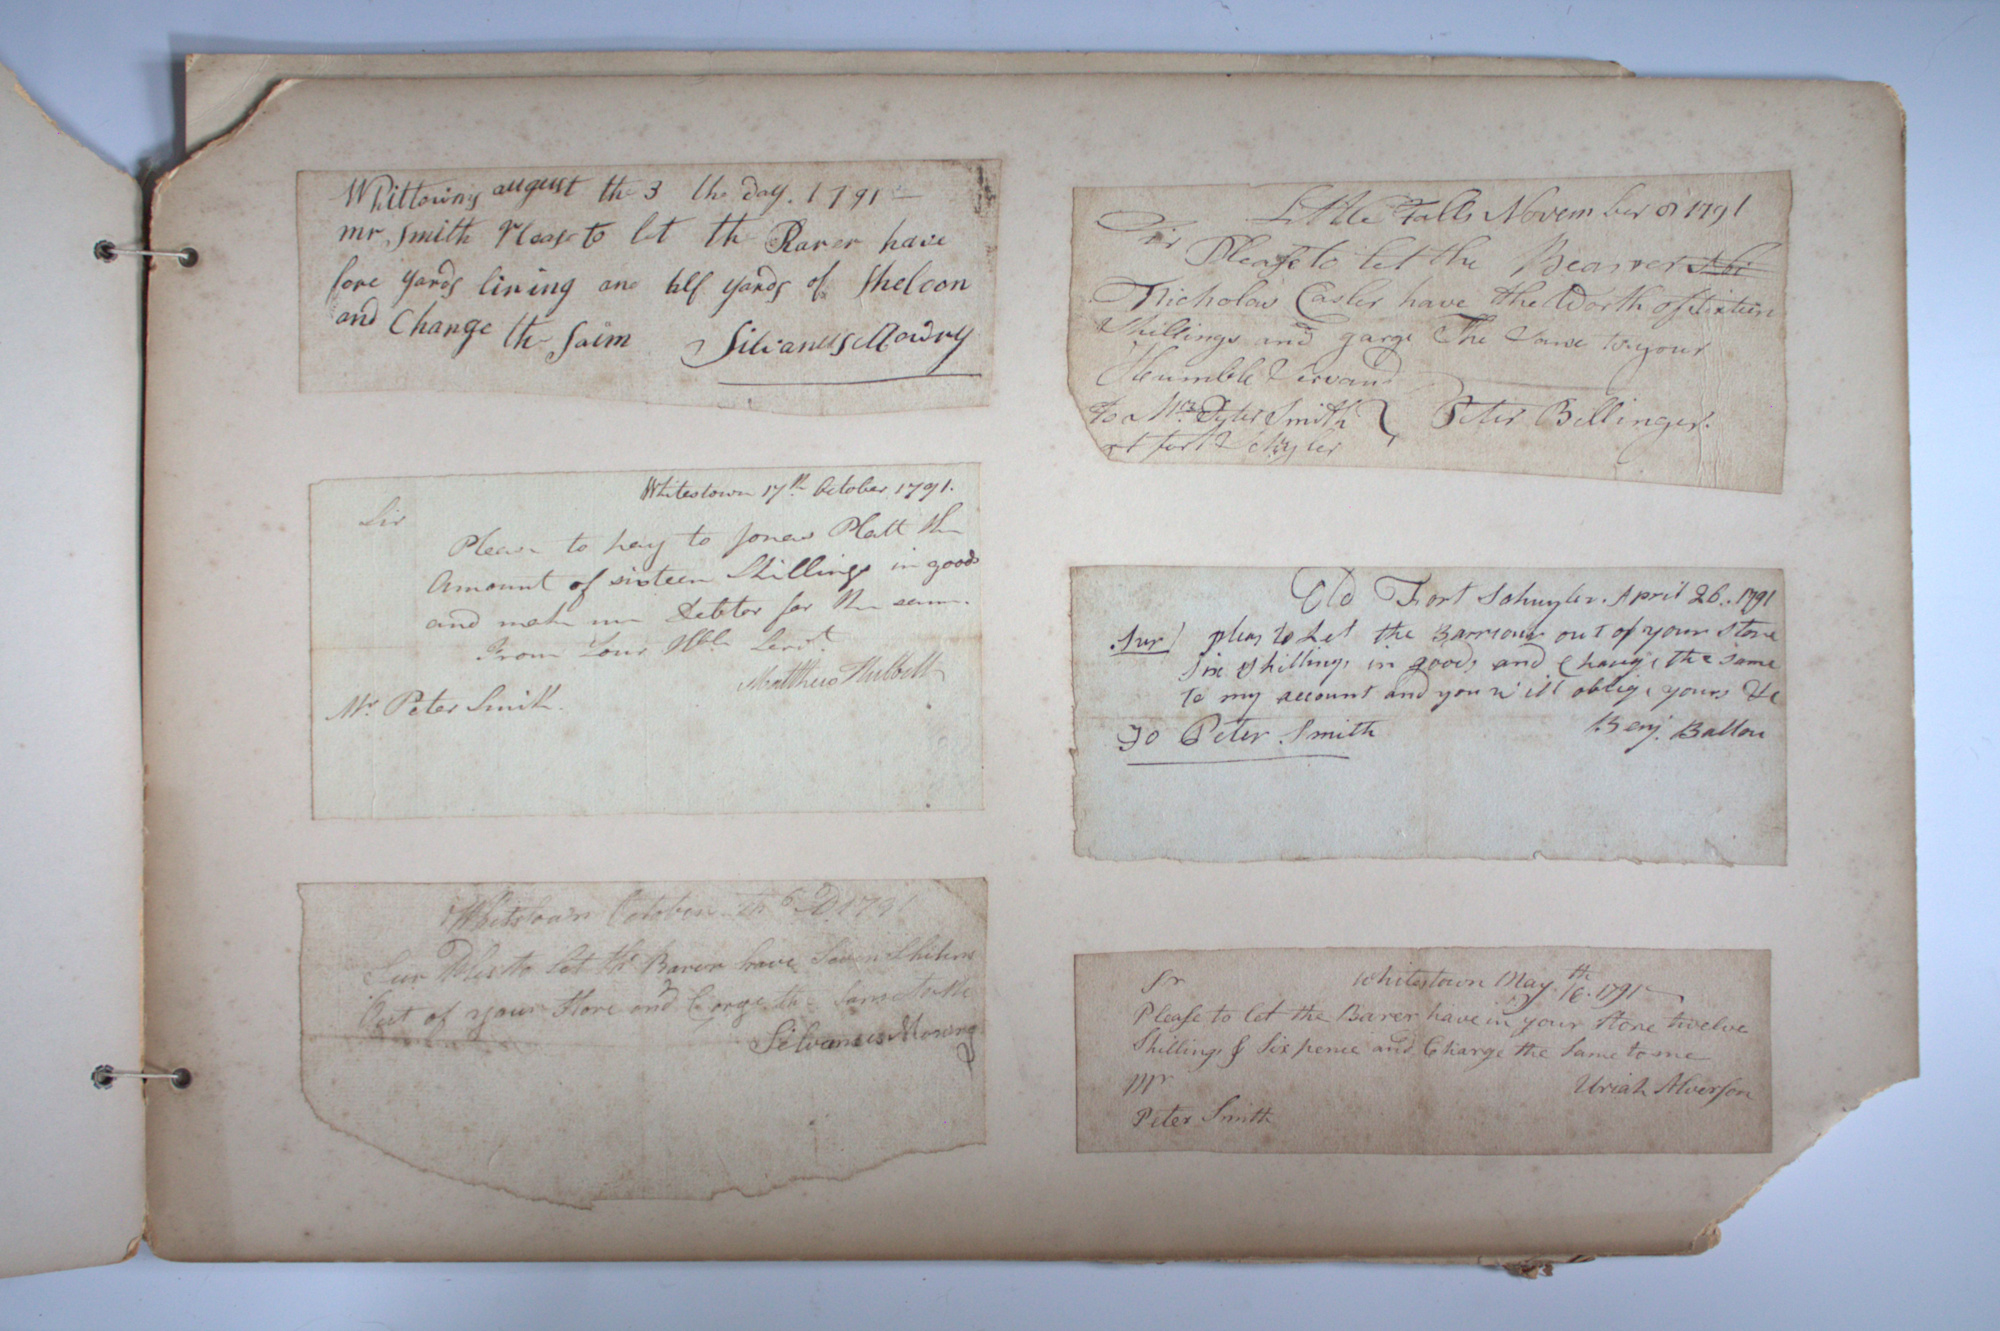 Whittowns august th 3 the day. 1791
mr Smith Please to let th Barer have
fore yards lining and half yards of Sheloon
and Change th Saim Silvanus Mowry
Whitestown 17th October 1791.
Sir
Please to pay to Jonas Platt the
Amount of sixteen Shillings in goods
and make me Debtor for the same.
From Your Hble Servt
Matthew Hubbell
Mr Peter Smith.
Whitstown October th 6 AD 1791
Sur Ples to let the Barer have Seven Shilens
Out of your Store and Corge the Same to Me
Silvanus Mowry
Little Falls November 8 1791
Sir
Please to let the Bearrer
Nicholas Casler have the Worth of Sixteen
Shillings and garge The Same to your
Heumble Servand
To Mr Peter Smith } Peter Bellinger.
at fort Schyler
Old Fort Schuyler. April 26. 1791
Sur pleas to Let the Barrour out of your Store
Six Shillings in goods and Charge the Same
to my account and you will oblige yours &c
To Peter Smith Benj. Ballou
Sr Whitestown May th 16. 1791
Please to let the Barer have in your Store twelve
Shillings & Six pence and Charge the Same to me
Mr Uriah Alverson
Peter Smith